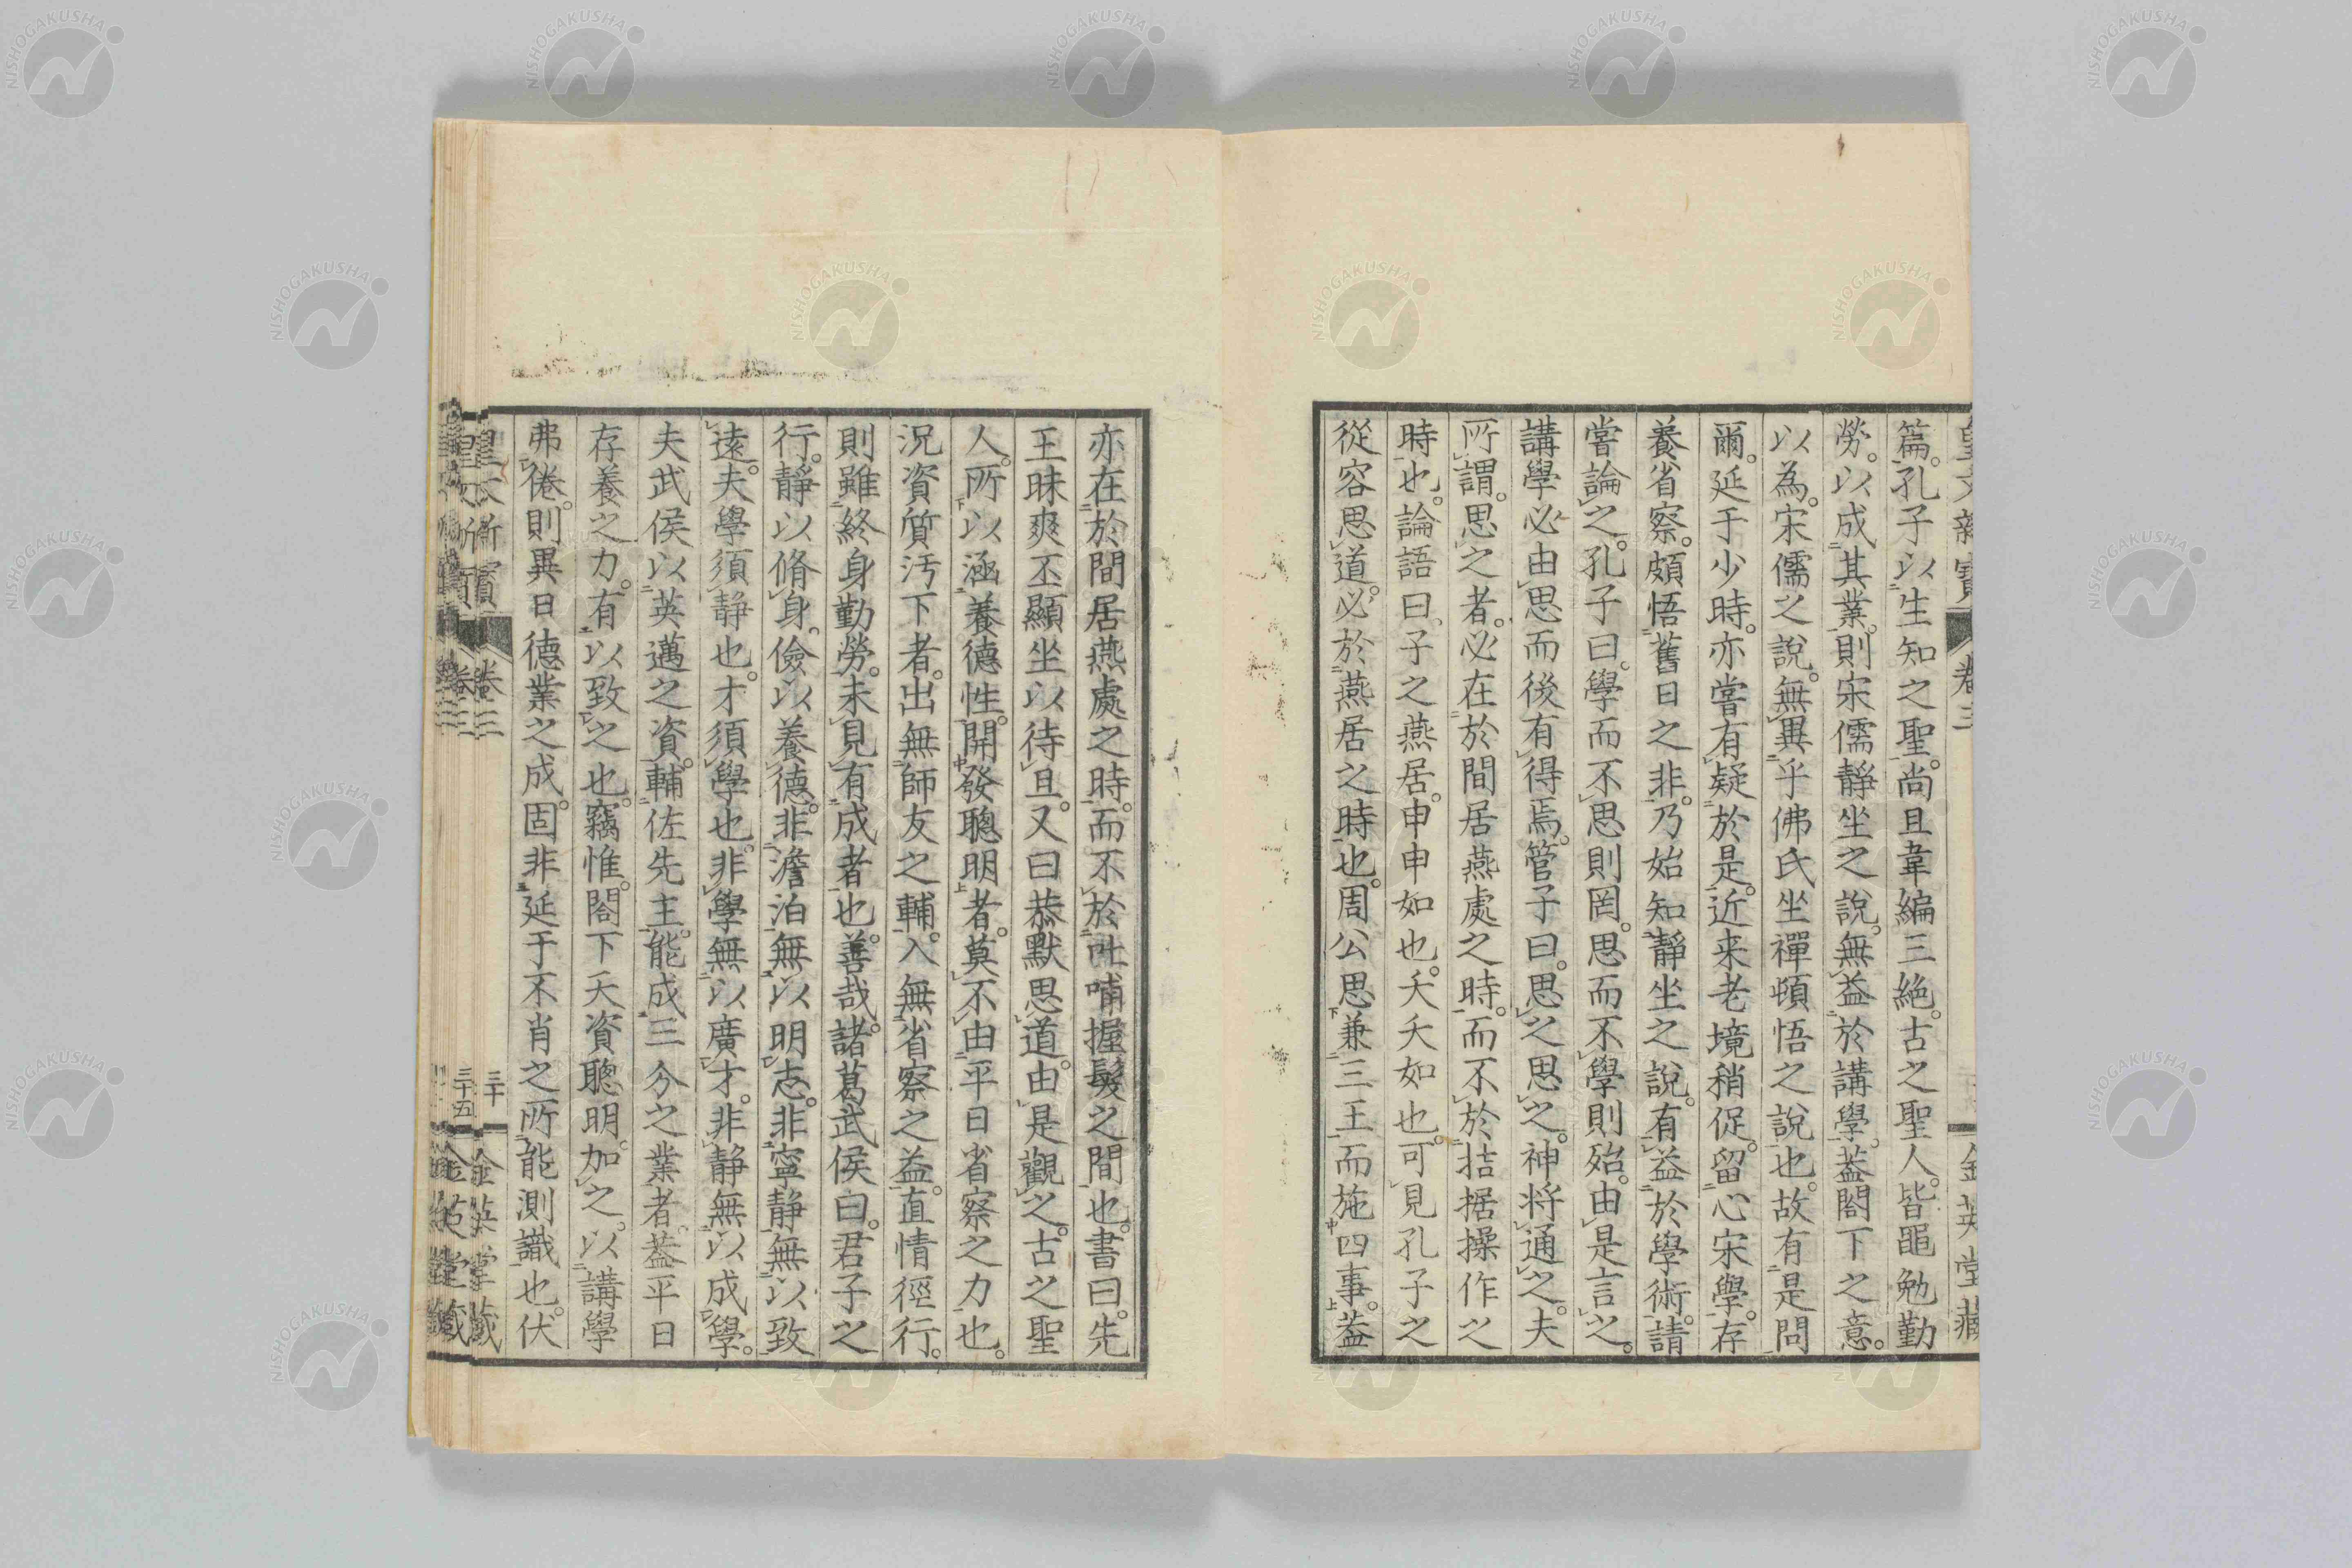 篇。孔子以生知之聖。尚且韋編三絶。古之聖人。皆黽勉勤
勞。以成其業。則宋儒靜坐之說。無益於講學。蓋閤下之意。
以為。宋儒之說。無異乎佛氏坐禪頓悟之說也。故有是問
爾。延于少時。亦嘗有疑於是。近来老境稍促。留心宋學。存
養省察。頗悟舊日之非。乃始知靜坐之說。有益於學術。請
嘗論之。孔子曰。學而不思則罔。思而不學則殆。由是言之。
講學必由思而後有得焉。管子曰。思之思之。神将通之。夫
所謂。思之者。必在於間居燕處之時。而不於拮据操作之
時也。論語曰。子之燕居。申申如也。夭夭如也。可見孔子之
從容思道。必於燕居之時也。周公思兼三王而施四事。蓋
亦在於間居燕處之時。而不於吐哺握髮之間也。書曰。先
王昧爽丕顯坐以待旦。又曰恭默思道。由是觀之。古之聖
人。所以涵養德性。開發聰明者。莫不由平日省察之力也。
況資質汚下者。出無師友之輔。入無省察之益。直情徑行。
則雖終身勤勞。未見有成者也。善哉。諸葛武侯曰。君子之
行。靜以脩身。儉以養德。非澹泊無以明志。非寧靜無以致
遠。夫學須靜也。才須學也。非學無以廣才。非靜無以成學。
夫武侯以英邁之資。輔佐先主。能成三分之業者。蓋平日
存養之力。有以致之也。竊惟。閤下天資聰明。加之。以講學
弗倦。則異日德業之成。固非延于不肖之所能測識也。伏
卷三
金英堂藏
三十
三十五